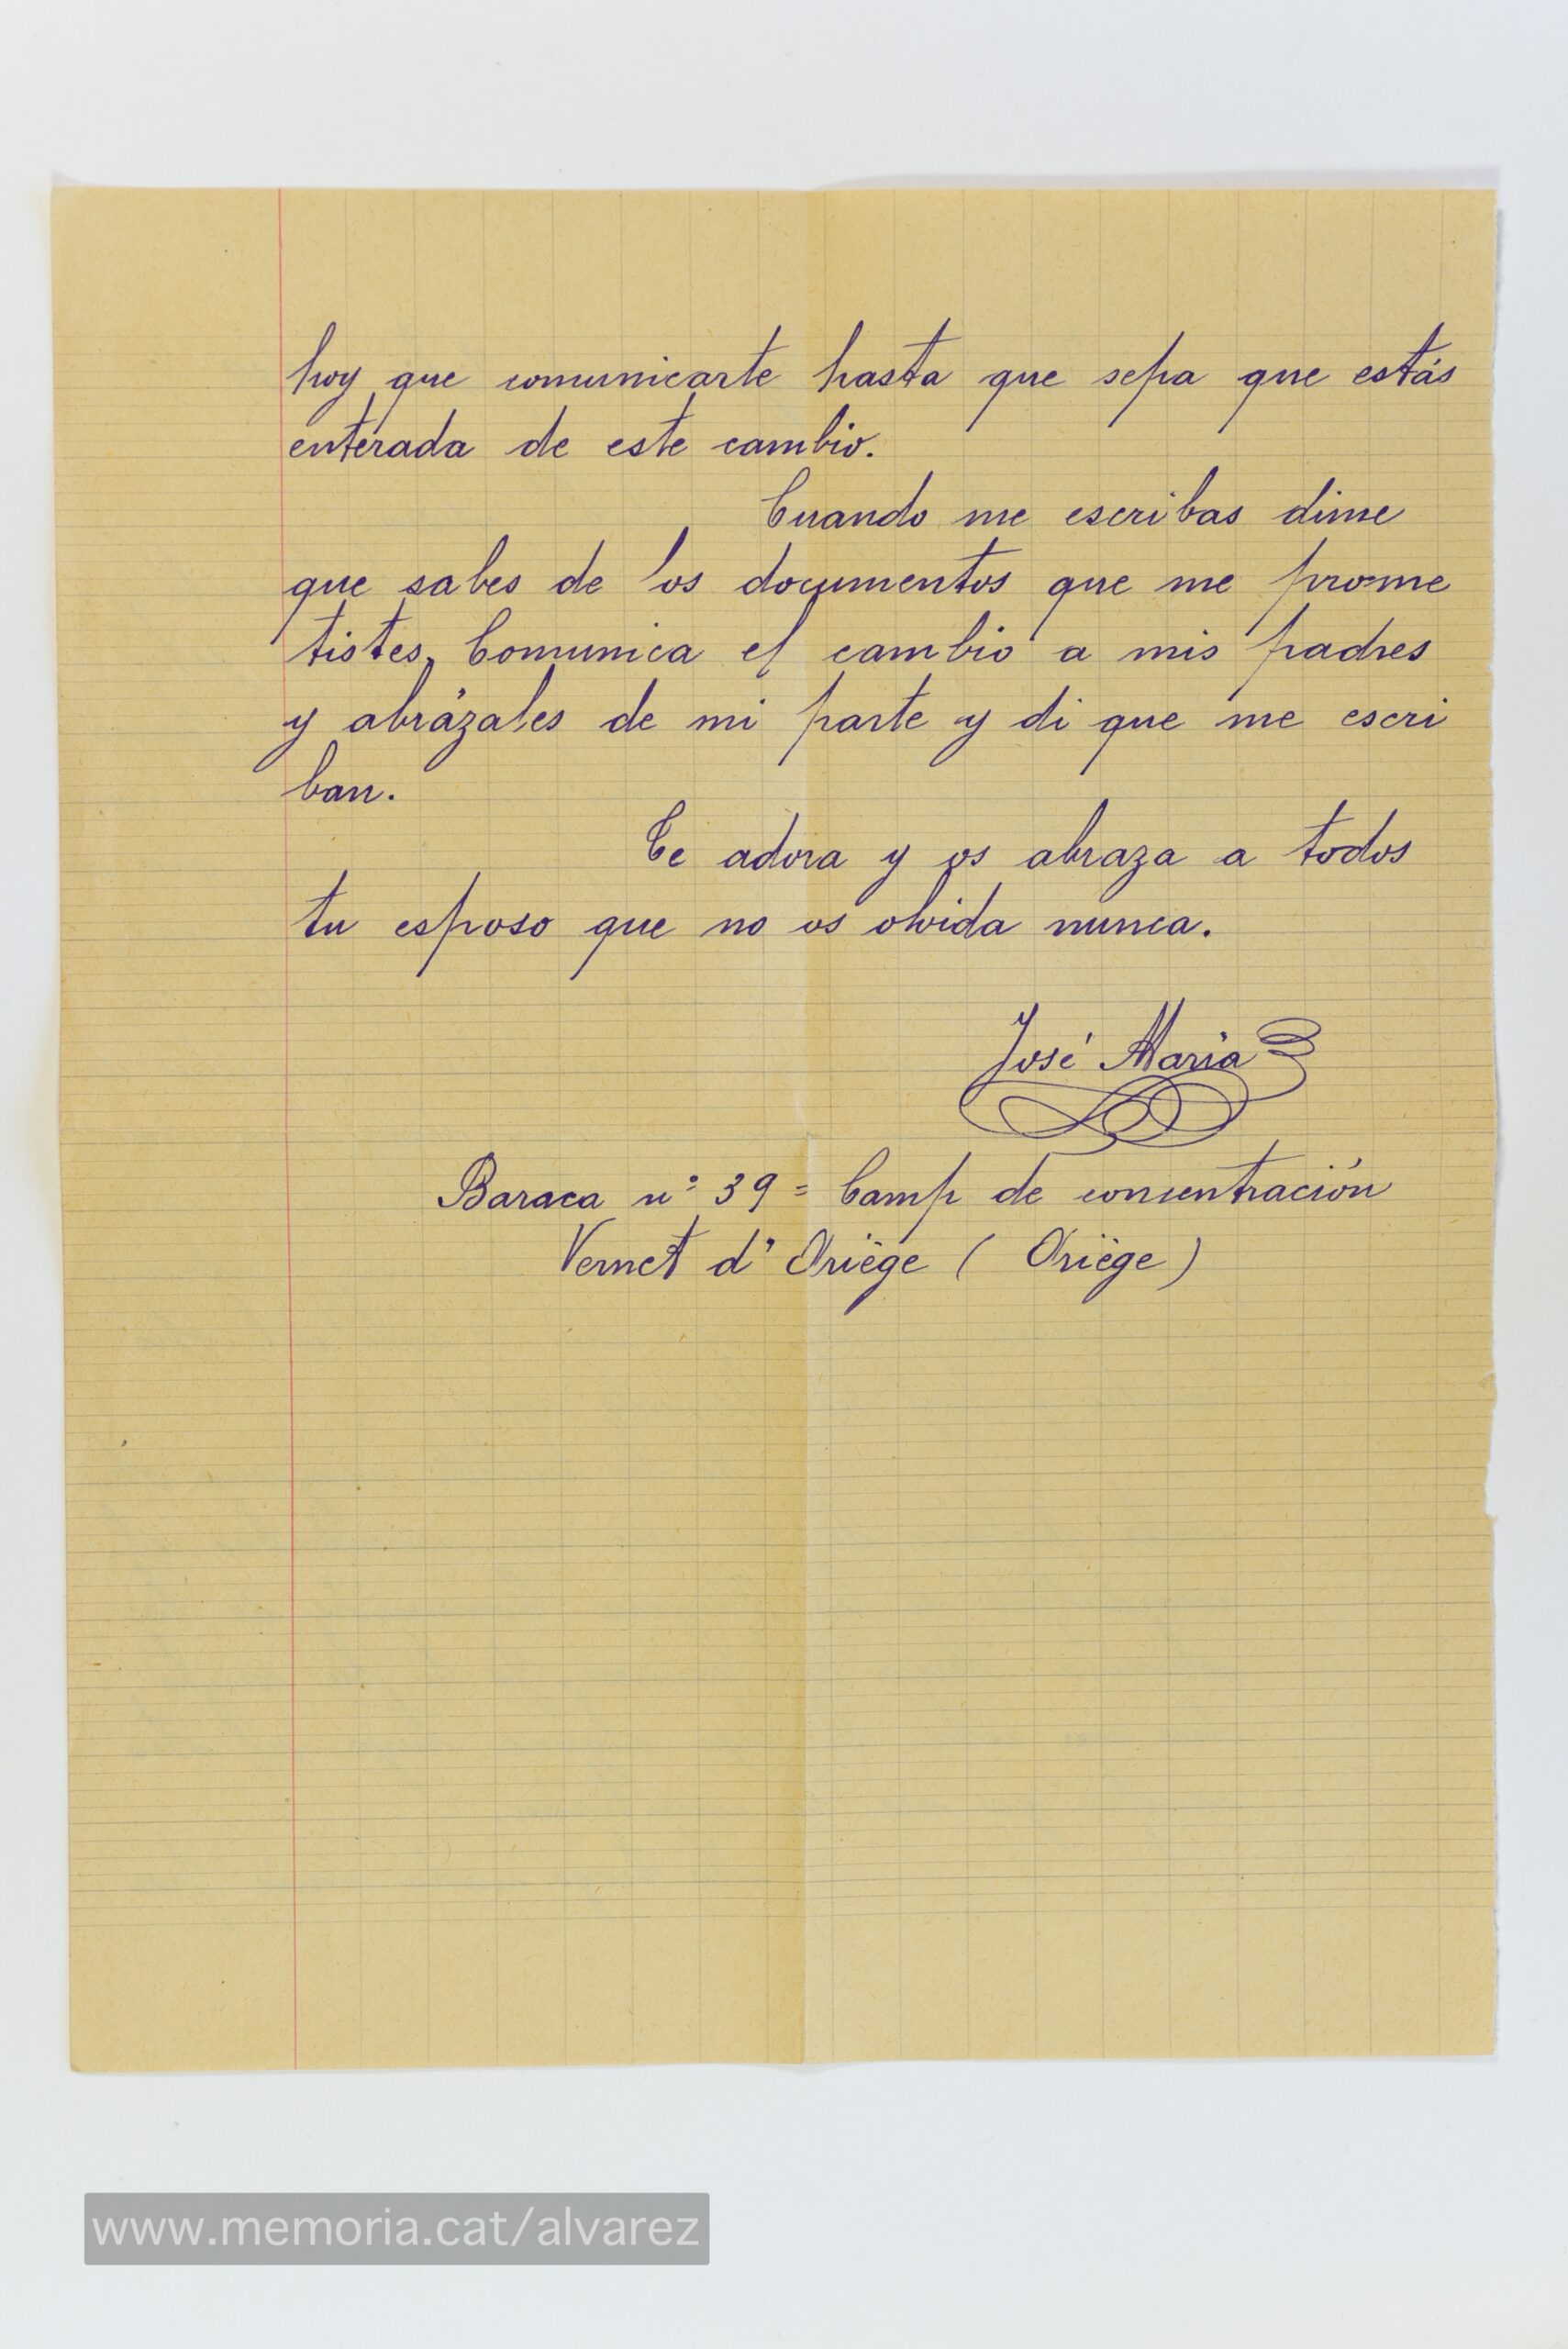 hoy que comunicarte hasta que sepa que estás
enterada de este cambio.
Cuando me escribas dime
que sabes de los documentos que me prome
tistes, Comunica el cambio a mis padres
y abrázales de mi parte y di que me escri
ban.
Te adora y os abraza a todos
tu esposo que no os olvida nunca.
José Maria
Baraca nº 39 = Camp de concentración
Vernet d' Ariège ( Ariège )
www.memoria.cat/alvarez